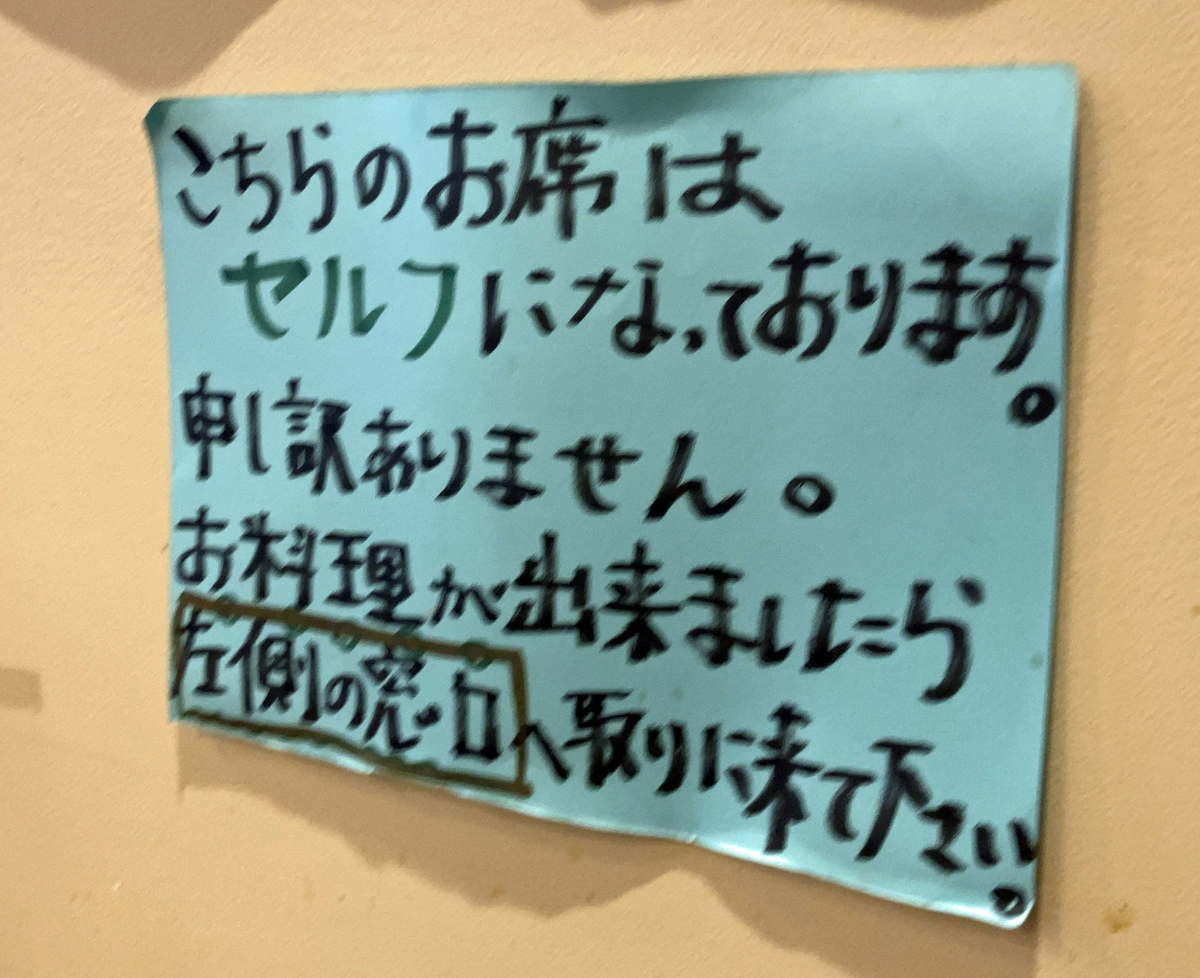 こちらのお席は
セルフになっております。
申し訳ありません。
お料理が出来ましたら
左側の窓口へ取りに来て下さい。